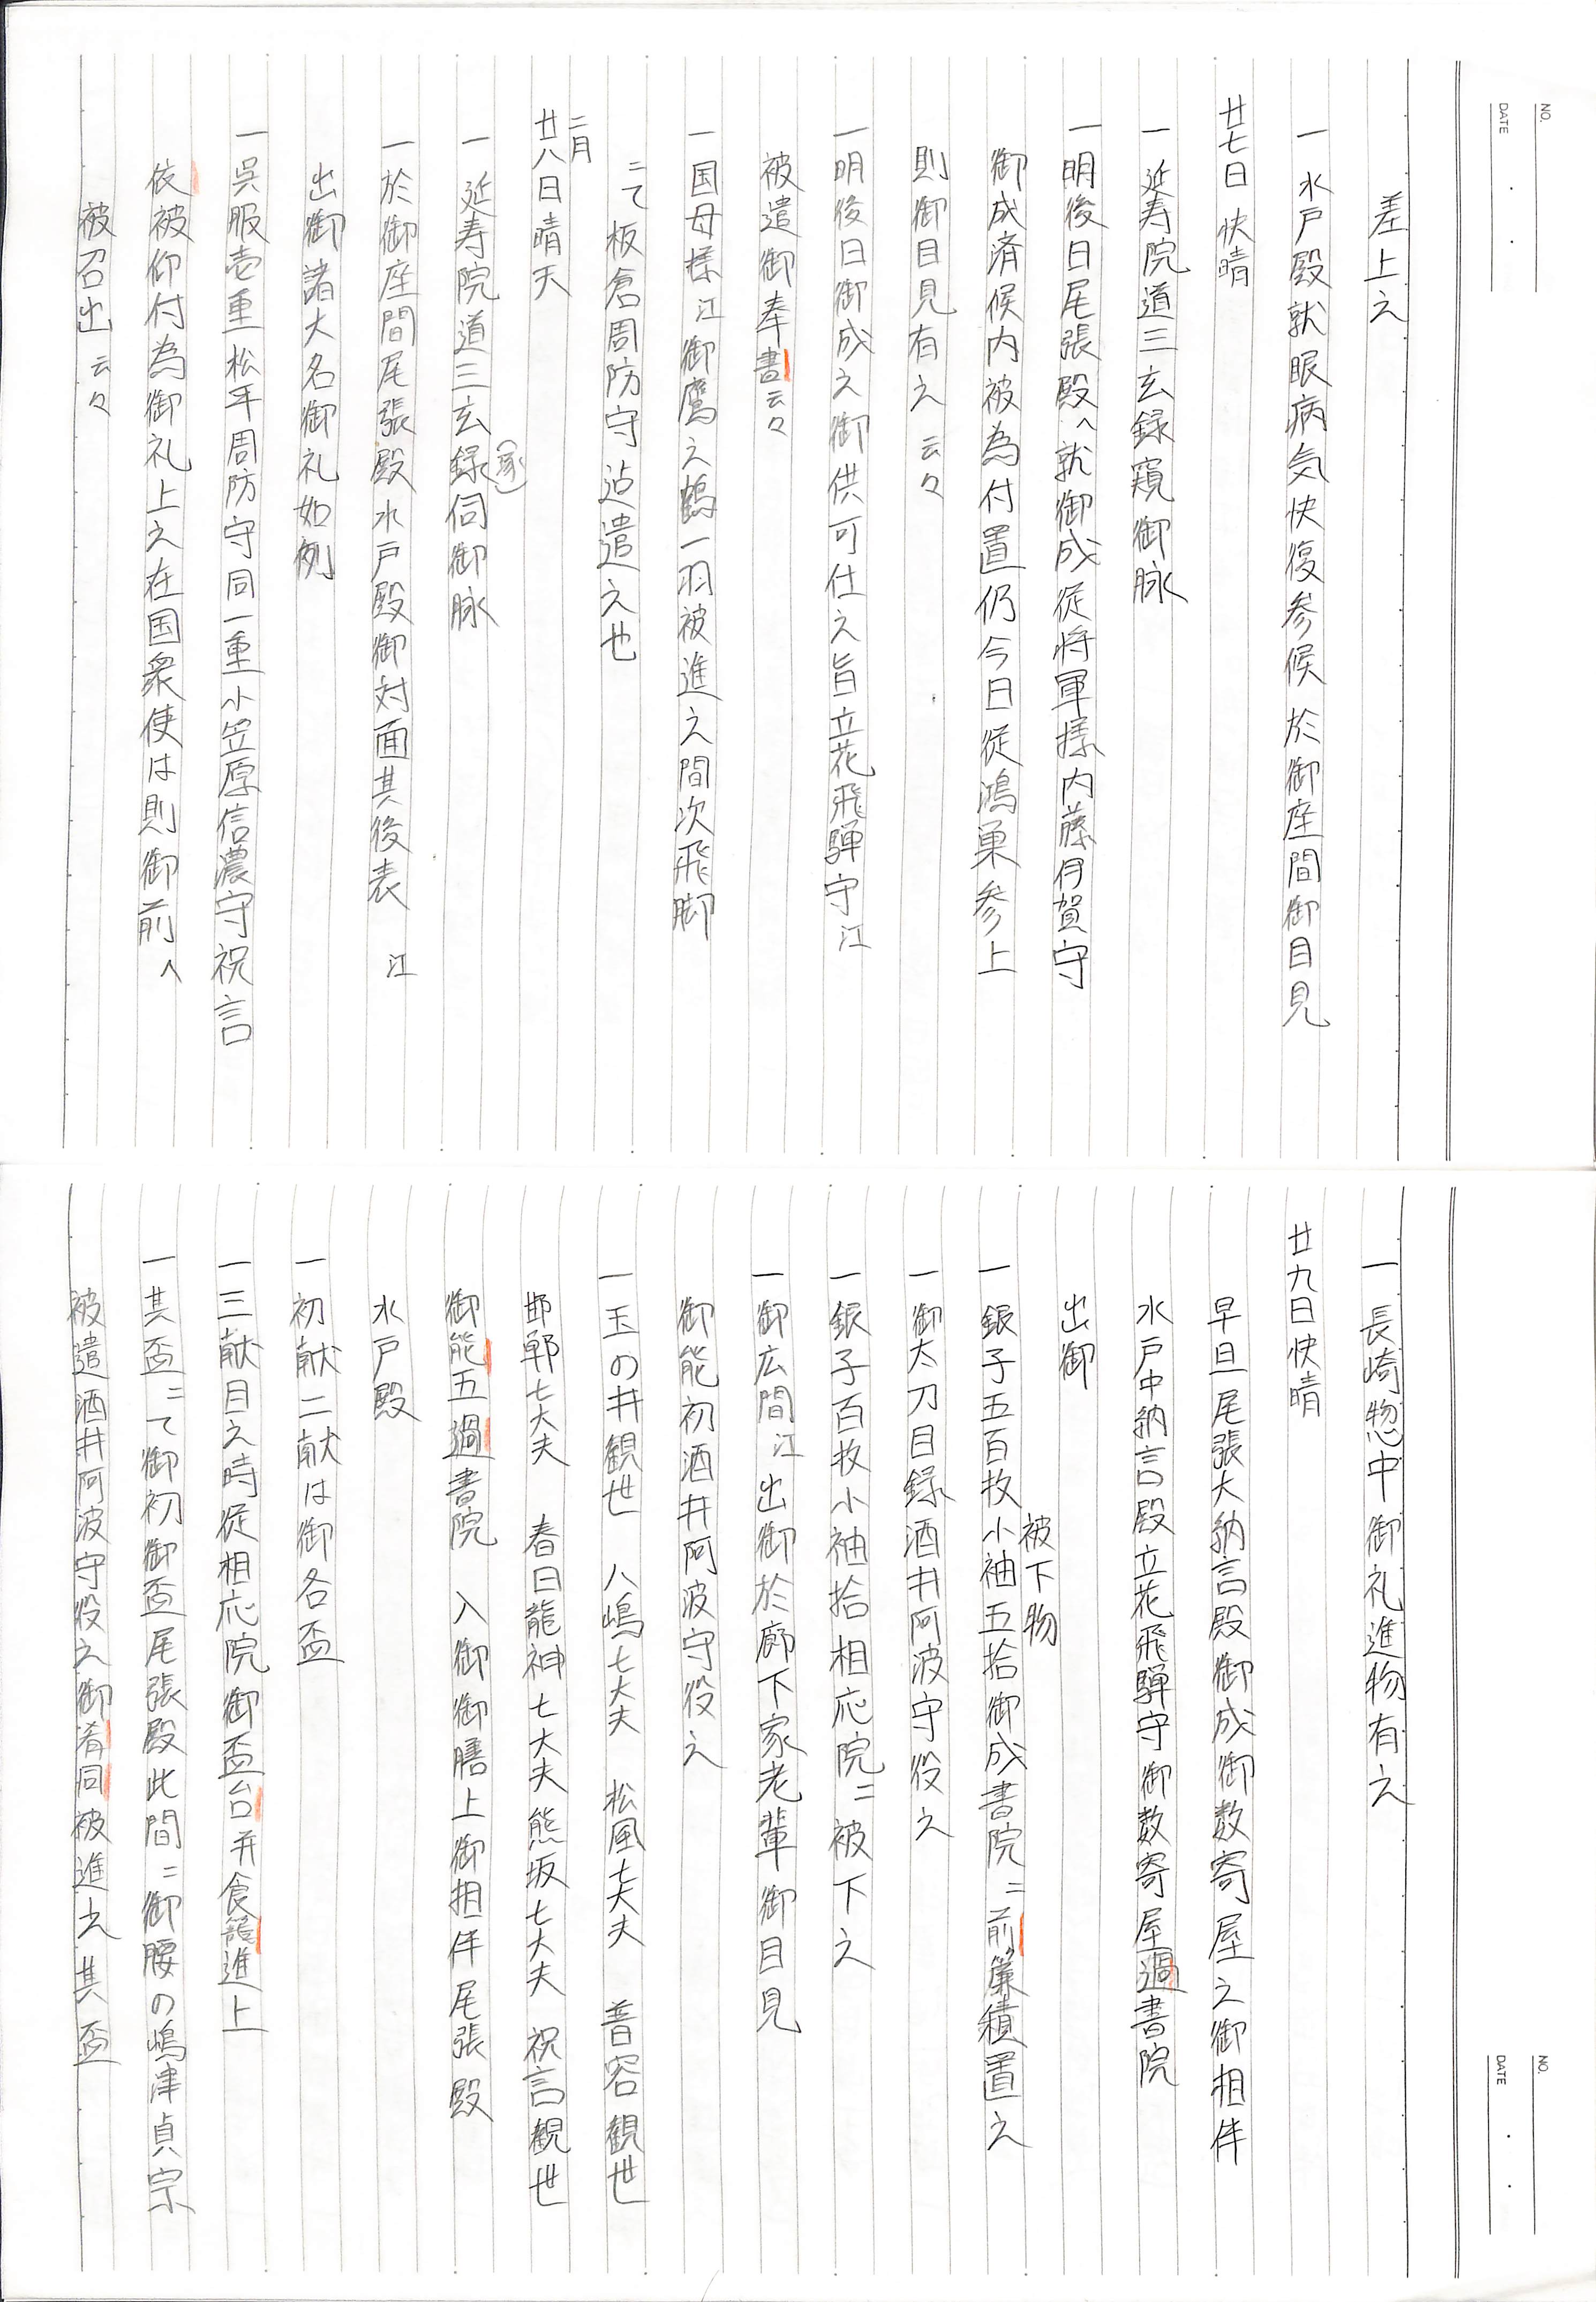 NO.
DATE
差上之
一 水戸殿就眼病気快復参候 於御座間御目見
廿七日 快晴
一 延寿院道三玄録窺御脉
一明後日尾張殿へ就御成従将軍様内藤伊賀守
御成済候内被為付置仍今日従鴻巣参上
則御目見有之 云々
一明後日御成之御供可仕之旨立花飛騨守江
被遣御奉書云々
一国母様江御鷹之鶴一羽被進之間次飛脚
ニて板倉周防守迠遣之也
二月
廿八日晴天
一 延寿院道三玄録(琢)伺御脉
一於御座間尾張殿水戸殿御対面其後表 江
出御諸大名御礼如例
一呉服壱重松平周防守同一重小笠原信濃守祝言
依被仰付為御礼上之在国衆使は則御前へ
被召出 云々
NO.
DATE
一長崎惣中御礼進物有之
廿九日快晴
早旦尾張大納言殿御成御数寄屋之御相伴
水戸中納言殿立花飛騨守御数寄屋過書院
出御
被下物
一銀子五百枚小袖五拾御成書院ニ前簾積置之
一御太刀目録酒井阿波守役之
一銀子百枚小袖拾相応院ニ被下之
一御広間江出御於廊下家老輩御目見
御能初酒井阿波守役之
一玉の井観世 八嶋七大夫 松風七大夫 普容観世
邯鄲七大夫 春日龍神七大夫熊坂七大夫 祝言観世
御能五過書院 入御御膳上御相伴尾張殿
水戸殿
一初献二献は御各盃
一三献目之時従相応院御盃台并食籠進上
一其盃ニて御初御盃尾張殿此間ニ御腰の嶋津貞宗
被遣酒井阿波守役之御肴同被進之其盃